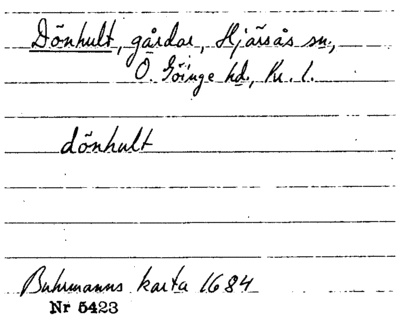 Dönhult, gårdar, Hjärsås sn.,
Ö. Göinge hd., Kr. l.
dönhult
Buhrmanns karta 1684
Nr 5423